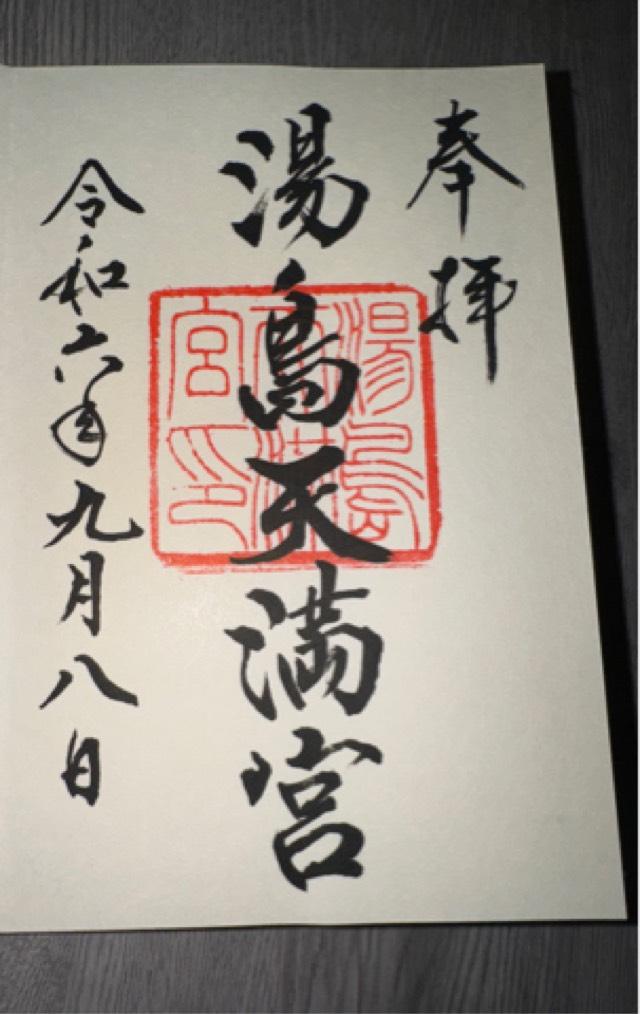 奉拝
湯島天満宮
湯島天満宮印
令和六年九月八日